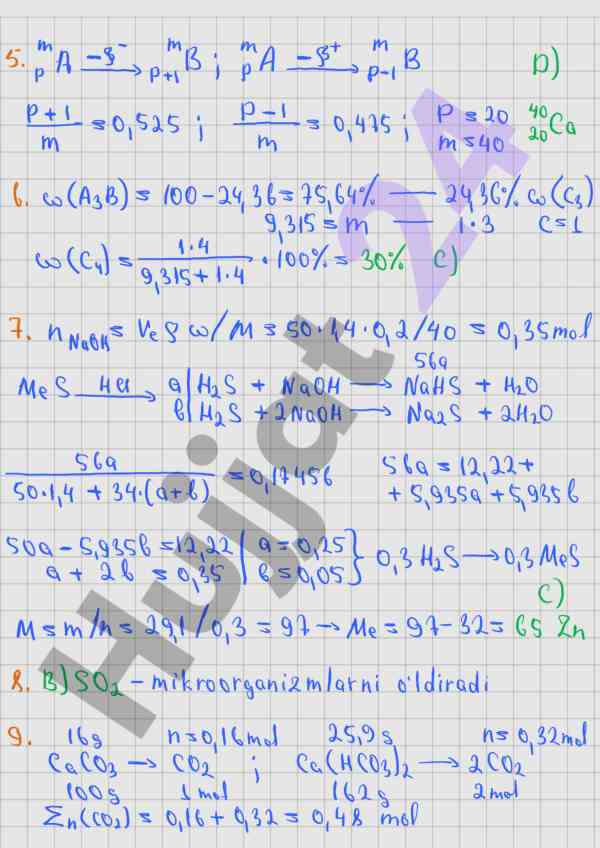 5. ᵐₚA —β⁻→ ᵐₚ₊₁B ; ᵐₚA —β⁺→ ᵐₚ₋₁B D)
(p+1)/m = 0,525 ; (p-1)/m = 0,475 ; p = 20 m = 40 ⁴⁰₂₀Ca
6. ω(A₃B) = 100 - 24,36 = 75,64% — 24,36% ω(C₃)
9,315 = m — 1·3 C = 1
ω(C₄) = (1·4)/(9,315 + 1·4) · 100% = 30% C)
7. n NaOH = Vρω/M = 50·1,4·0,2/40 = 0,35mol
56a
MeS —HCl→ a|H₂S + NaOH → NaHS + H₂O
b|H₂S + 2NaOH → Na₂S + 2H₂O
56a/(50·1,4 + 34·(a+b)) = 0,17456 56a = 12,22+
+ 5,935a + 5,935b
50a - 5,935b = 12,22 | a = 0,25
a + 2b = 0,35 | b = 0,05 } 0,3 H₂S → 0,3 MeS
C)
M = m/n = 29,1/0,3 = 97 → Me = 97 - 32 = 65 Zn
8. B) SO₂ - mikroorganizmlarni o'ldiradi
9. 16g n=0,16mol 25,9g n=0,32mol
CaCO₃ → CO₂ ; Ca(HCO₃)₂ → 2CO₂
100g 1mol 162g 2mol
Σn(CO₂) = 0,16 + 0,32 = 0,48 mol
Hujjat 24